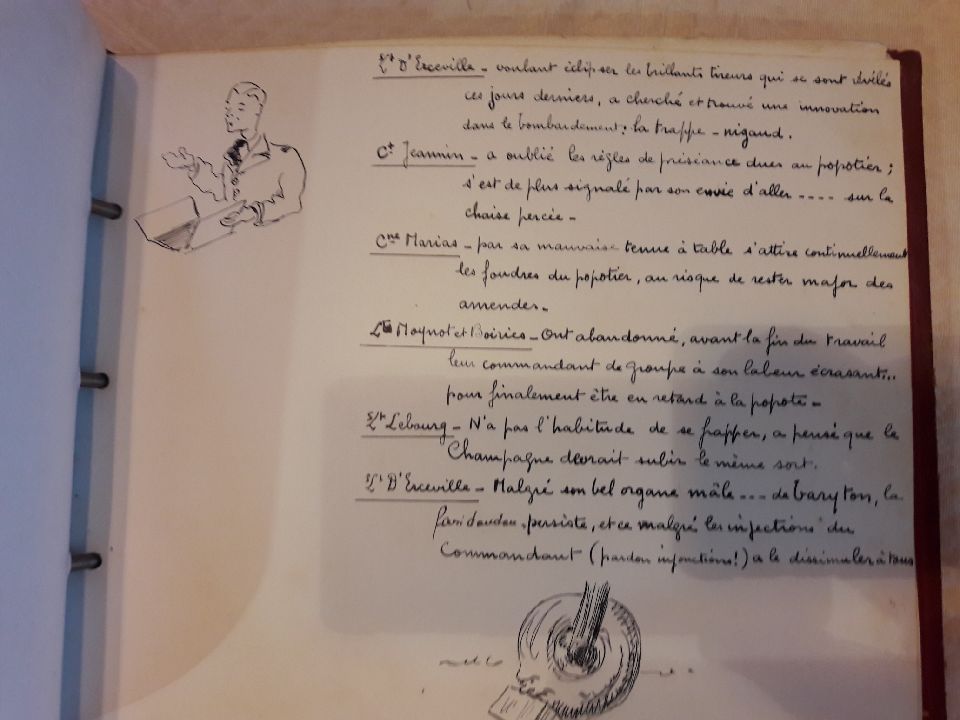 Lt D'Erceville - voulant éclipser les brillants tireurs qui se sont révélés
ces jours derniers, a cherché et trouvé une innovation
dans le bombardement: la trappe - nigaud.
Ct Jeannin - a oublié les règles de préséance dues au popotier ;
s'est de plus signalé par son envie d'aller .... sur la
chaise percée -
Cne Marias - par sa mauvaise tenue à table s'attire continuellement
les foudres du popotier, au risque de rester major des
amendes -
Lts Moynot et Boiries - Ont abandonné, avant la fin du travail
leur commandant de groupe à son labeur écrasant...
pour finalement être en retard à la popote -
Lt Lebourg - N'a pas l'habitude de se frapper, a pensé que le
Champagne devrait subir le même sort.
Lt D'Erceville - Malgré son bel organe mâle ... de baryton, la
persiste, et ce malgré les injections du
Commandant (pardon injonctions!) a le dissimuler à tous